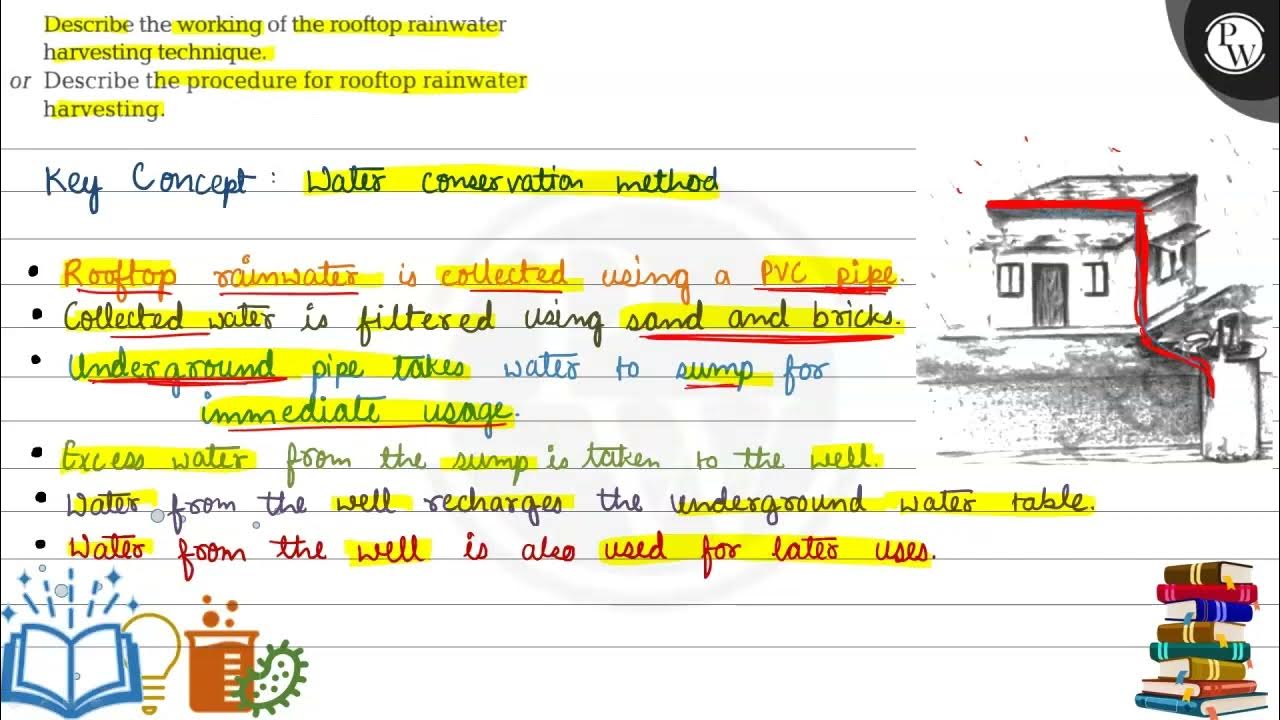 Describe the working of the rooftop rainwater
harvesting technique.
or Describe the procedure for rooftop rainwater
harvesting.
PW
Key Concept : Water conservation method
• Rooftop rainwater is collected using a PVC pipe.
• Collected water is filtered using sand and bricks.
• Underground pipe takes water to sump for
immediate usage.
• Excess water from the sump is taken to the well.
• Water from the well recharges the underground water table.
• Water from the well is also used for later uses.